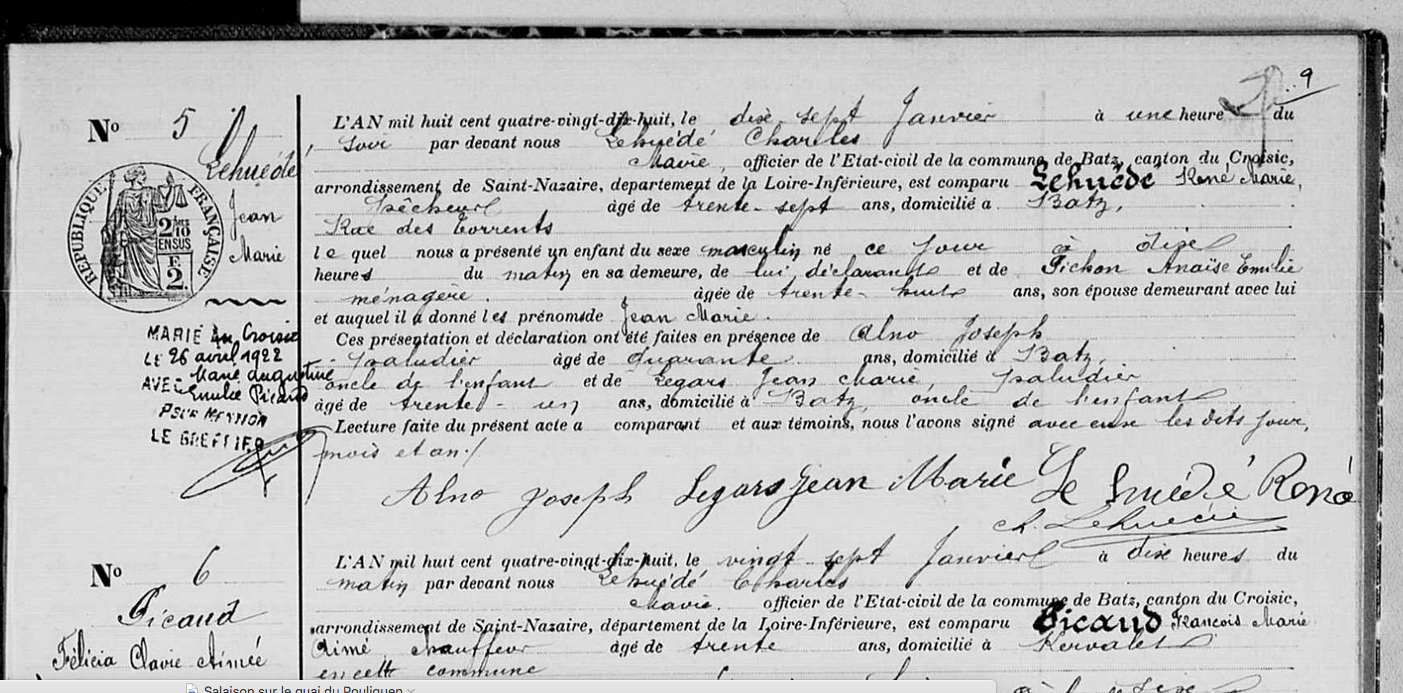 9
Nº 5
Lehuédé
Jean
Marie
RÉPUBLIQUE FRANÇAISE
2/10
EN SUS
F.
2.
MARIÉ Au Croisic
LE 26 avril 1922
AVEC Marie Augustine
Emilie Picaud
POUR MENTION
LE GREFFIER
L'AN mil huit cent quatre-vingt-dix-huit, le dix sept Janvier à une heure du
soir par devant nous Lehuédé Charles
Marie, officier de l'Etat-civil de la commune de Batz, canton du Croisic,
arrondissement de Saint-Nazaire, département de la Loire-Inférieure, est comparu Lehuédé René Marie,
Pêcheur âgé de trente-sept ans, domicilié à Batz,
Rue des Torrents
lequel nous a présenté un enfant du sexe masculin né ce jour à dix
heures du matin en sa demeure, de lui déclarant et de Pichon Anaïse Emilie
ménagère. âgée de trente-huit ans, son épouse demeurant avec lui
et auquel il a donné les prénoms de Jean Marie.
Ces présentation et déclaration ont été faites en présence de Alno Joseph
paludier âgé de quarante ans, domicilié à Batz,
oncle de l'enfant et de Legars Jean Marie, paludier
âgé de trente-un ans, domicilié à Batz, oncle de l'enfant
Lecture faite du présent acte a comparant et aux témoins, nous l'avons signé avec eux les dits jour,
mois et an./
Alno Joseph Legars Jean Marie Le huédé René
Ch. Lehuédé
Nº 6
Picaud
Félicia Clavie Aimée
L'AN mil huit cent quatre-vingt-dix-huit, le vingt sept Janvier à dix heures du
matin par devant nous Lehuédé Charles
Marie. officier de l'Etat-civil de la commune de Batz, canton du Croisic,
arrondissement de Saint-Nazaire, département de la Loire-Inférieure, est comparu Picaud François Marie
Aimé chauffeur âgé de trente ans, domicilié à Kervalet
en cette commune
Salaison sur le quai du Pouliguen